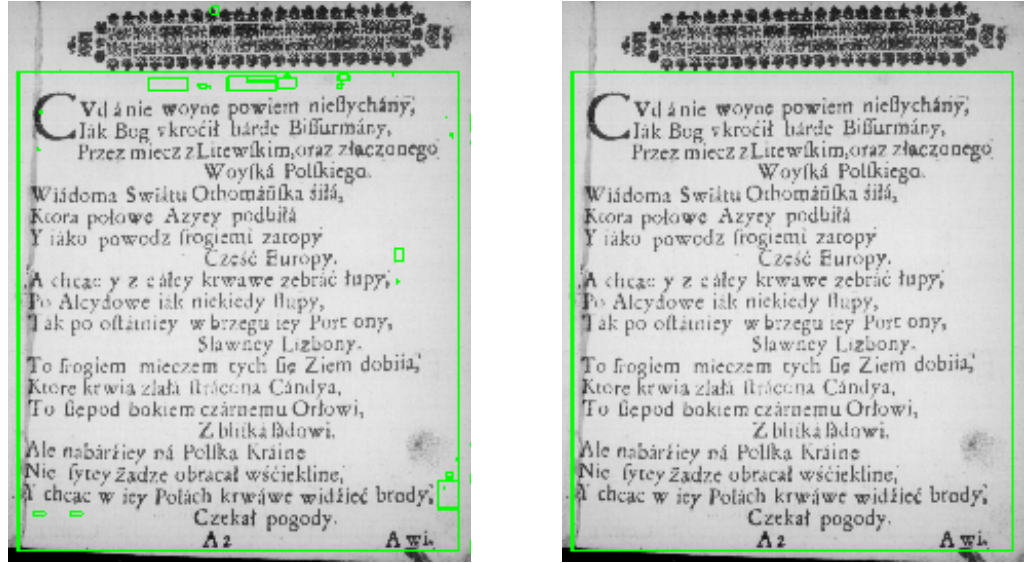 CVd á nie woynę powiem niesłychány,
Iák Bog vkroćił hárde Bissurmány,
Przez miecz z Litewſkim, oraz złączonego
Woyſká Polſkiego.
Wiádoma Swiátu Othomáńſka śiłá,
Ktora połowę Azyey podbiłá
Y iáko powodz ſrogiemi zatopy
Część Europy.
A chcąc y z cáłey krwawe zebráć łupy,
Po Alcydowe iák niekiedy ſlupy,
Ták po oſtátniey w brzegu iey Port ony,
Sławney Lizbony.
To ſrogiem mieczem tych ſię Ziem dobiiá,
Ktore krwia zlałá ſtrácona Cándya,
To ſię pod bokiem czárnemu Orłowi,
Z bliſká ſádowi.
Ale nabárźiey ná Polſka Kráine
Nie ſytey żadze obracał wśćiekline,
Y chcąc w iey Polách krwáwe widźieć brody,
Czekał pogody.
A 2 A wi.
CVd á nie woynę powiem niesłychány,
Iák Bog vkroćił hárde Bissurmány,
Przez miecz z Litewſkim, oraz złączonego
Woyſká Polſkiego.
Wiádoma Swiátu Othomáńſka śiłá,
Ktora połowę Azyey podbiłá
Y iáko powodz ſrogiemi zatopy
Część Europy.
A chcąc y z cáłey krwawe zebráć łupy,
Po Alcydowe iák niekiedy ſlupy,
Ták po oſtátniey w brzegu iey Port ony,
Sławney Lizbony.
To ſrogiem mieczem tych ſię Ziem dobiiá,
Ktore krwia zlałá ſtrácona Cándya,
To ſię pod bokiem czárnemu Orłowi,
Z bliſká ſádowi.
Ale nabárźiey ná Polſka Kráine
Nie ſytey żadze obracał wśćiekline,
Y chcąc w iey Polách krwáwe widźieć brody,
Czekał pogody.
A 2 A wi.